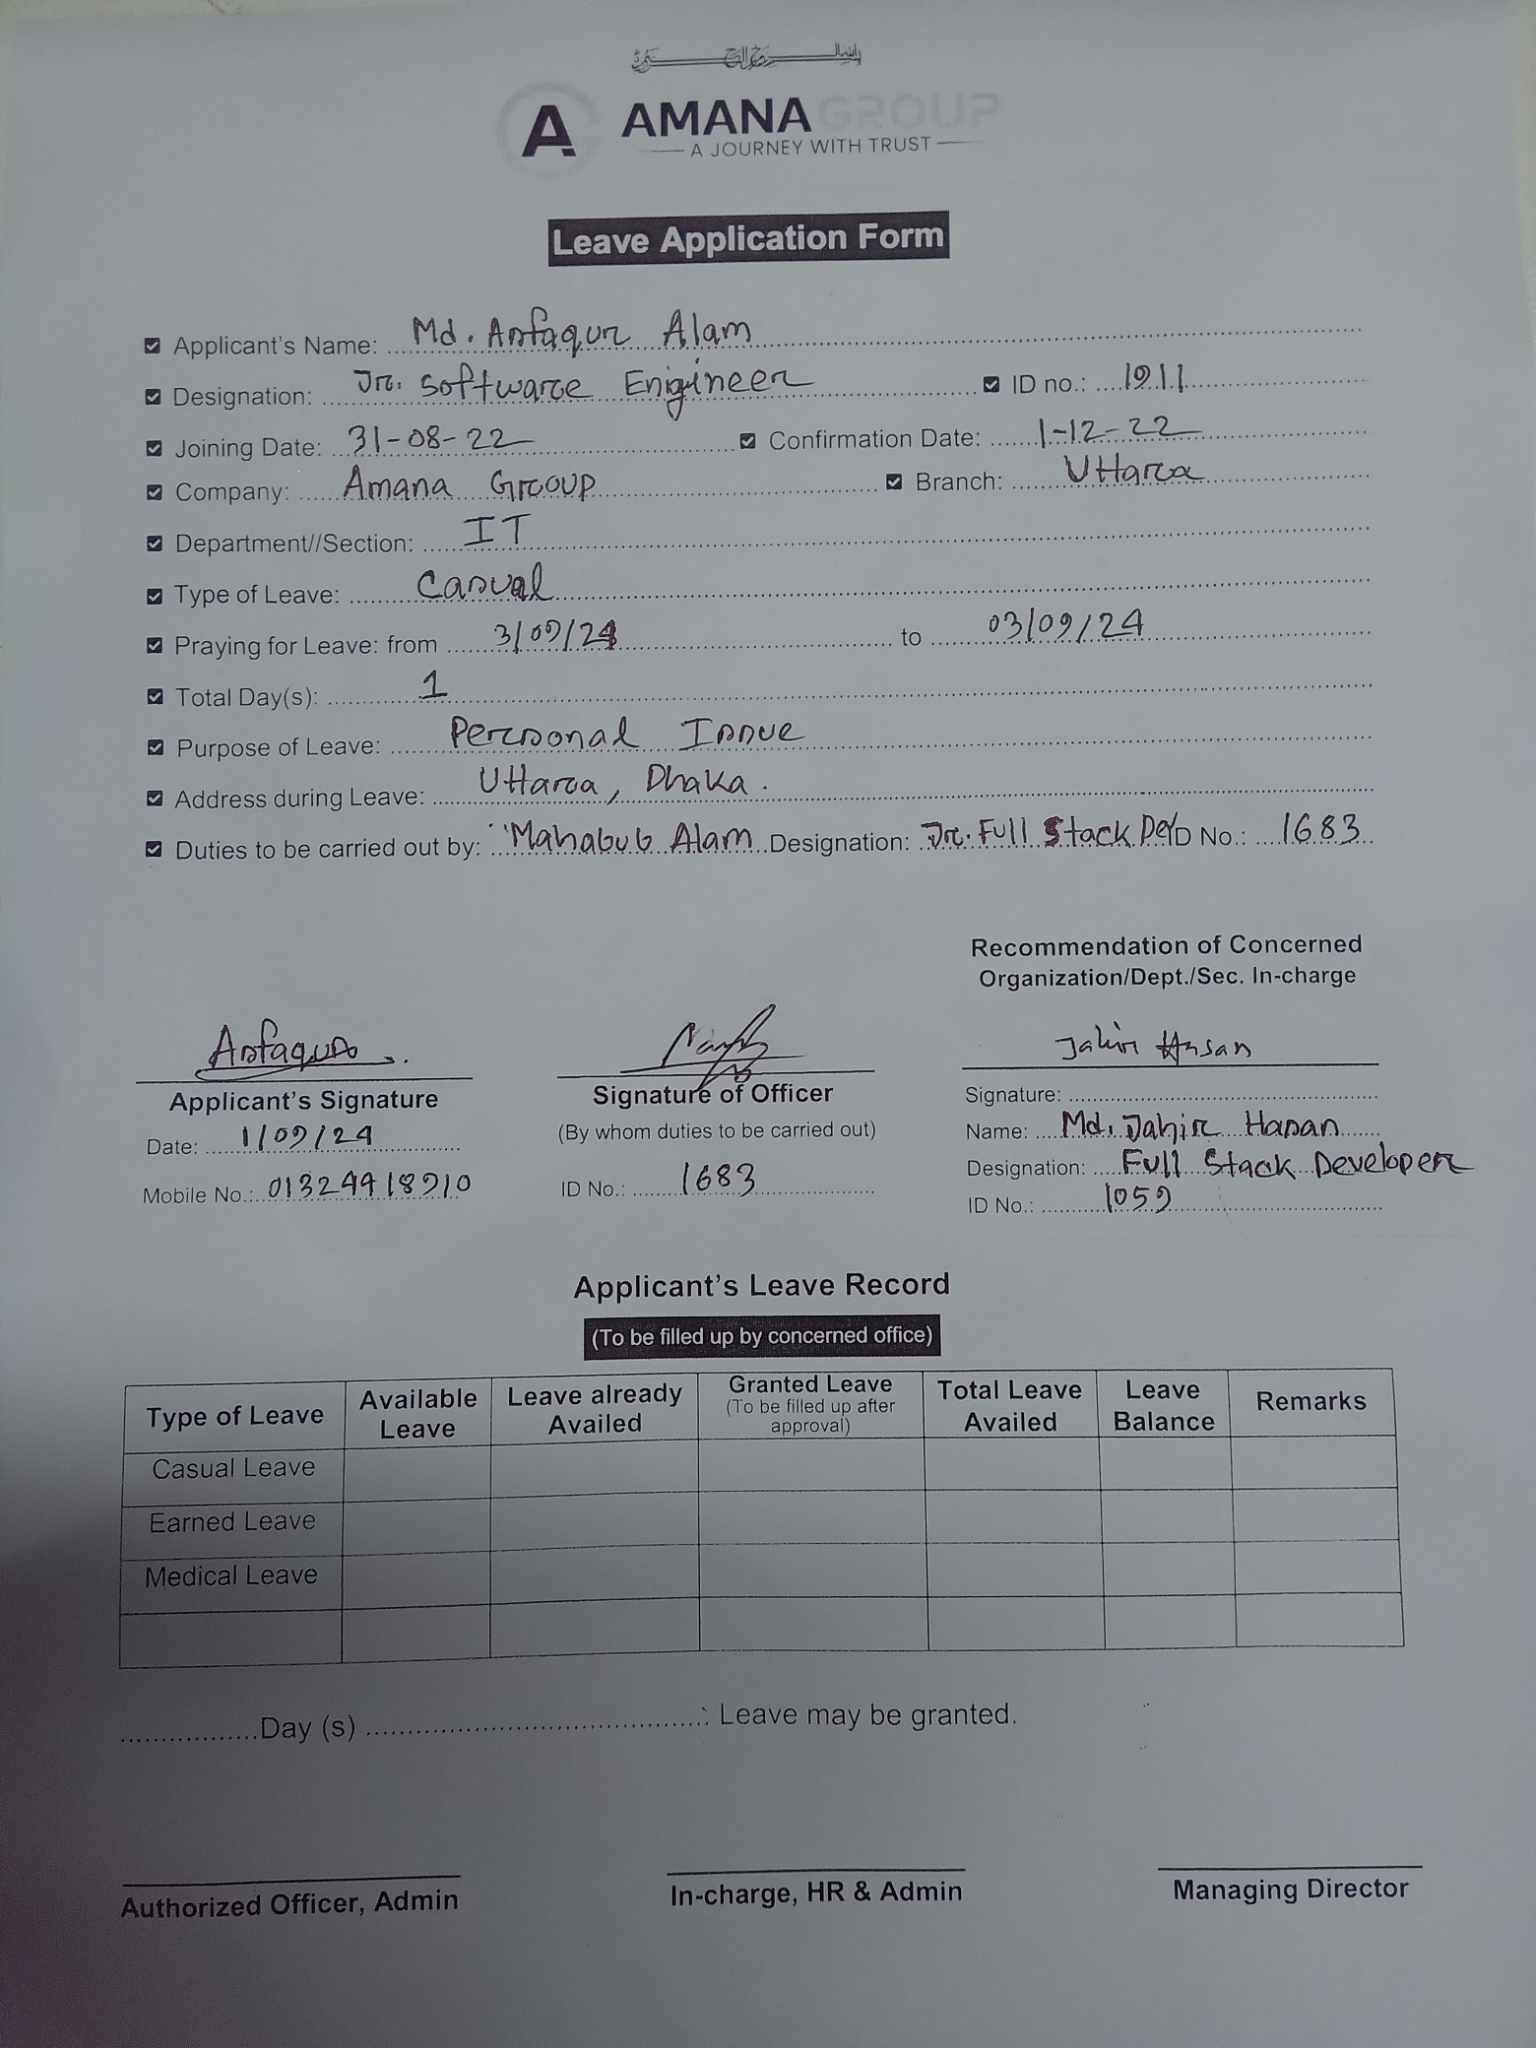 AMANA GROUP
A JOURNEY WITH TRUST
Leave Application Form
Applicant's Name: Md. Asfaqur Alam
Designation: Jr. Software Enigineer ID no.: 1911
Joining Date: 31-08-22 Confirmation Date: 1-12-22
Company: Amana Group Branch: Uttara
Department//Section: IT
Type of Leave: Casual
Praying for Leave: from 3/09/24 to 03/09/24
Total Day(s): 1
Purpose of Leave: Personal Issue
Address during Leave: Uttara, Dhaka.
Duties to be carried out by: Mahabub Alam Designation: Jr. Full Stack Dev ID No.: 1683
Recommendation of Concerned
Organization/Dept./Sec. In-charge
Asfaqur Jahir Hasan
Applicant's Signature Signature of Officer Signature:
Date: 1/09/24 (By whom duties to be carried out) Name: Md. Jahir Hasan
Mobile No.: 01324418910 ID No.: 1683 Designation: Full Stack Developer
ID No.: 1059
Applicant's Leave Record
(To be filled up by concerned office)
Type of Leave Available Leave Leave already Availed Granted Leave (To be filled up after approval) Total Leave Availed Leave Balance Remarks
Casual Leave
Earned Leave
Medical Leave
Day (s) : Leave may be granted.
Authorized Officer, Admin In-charge, HR & Admin Managing Director